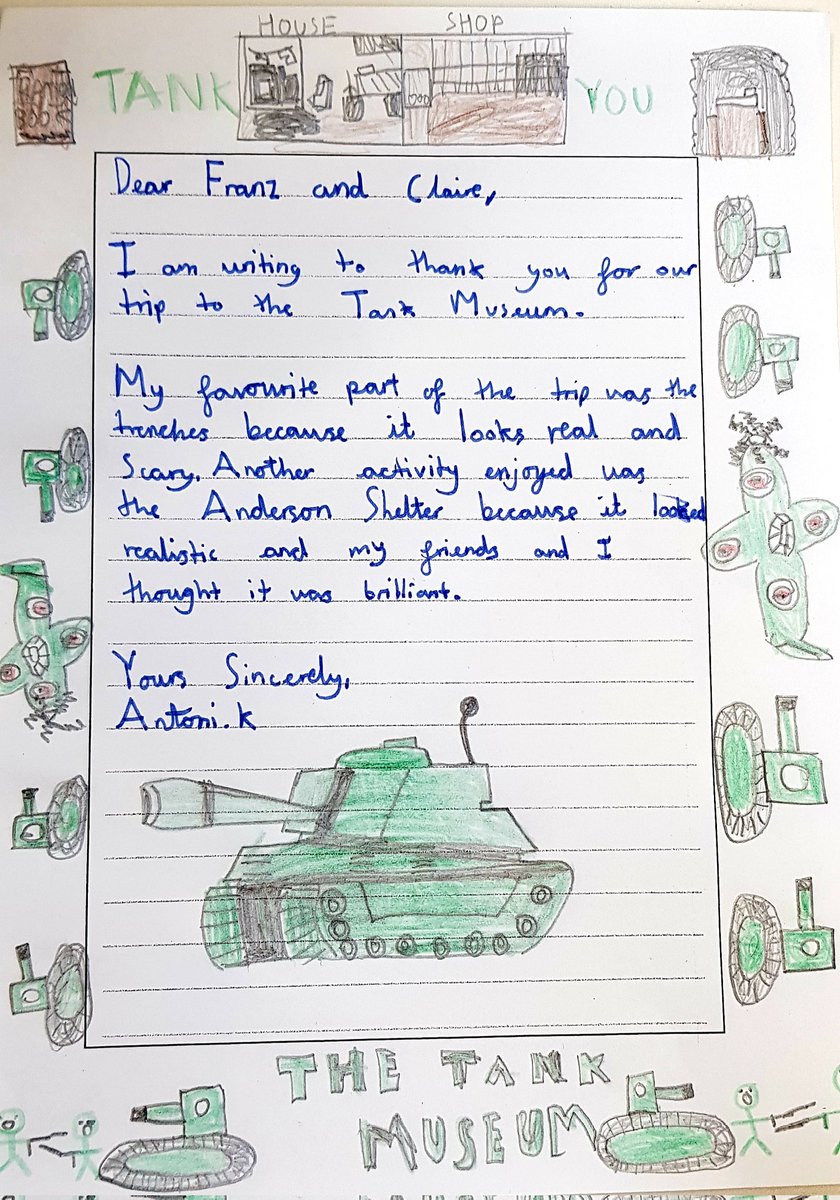 HOUSE SHOP
TANK YOU
Dear Franz and Claire,
I am writing to thank you for our
trip to the Tank Museum.
My favourite part of the trip was the
trenches because it looks real and
Scary. Another activity enjoyed was
the Anderson Shelter because it looked
realistic and my friends and I
thought it was brilliant.
Yours Sincerely,
Antoni.K
THE TANK
MUSEUM